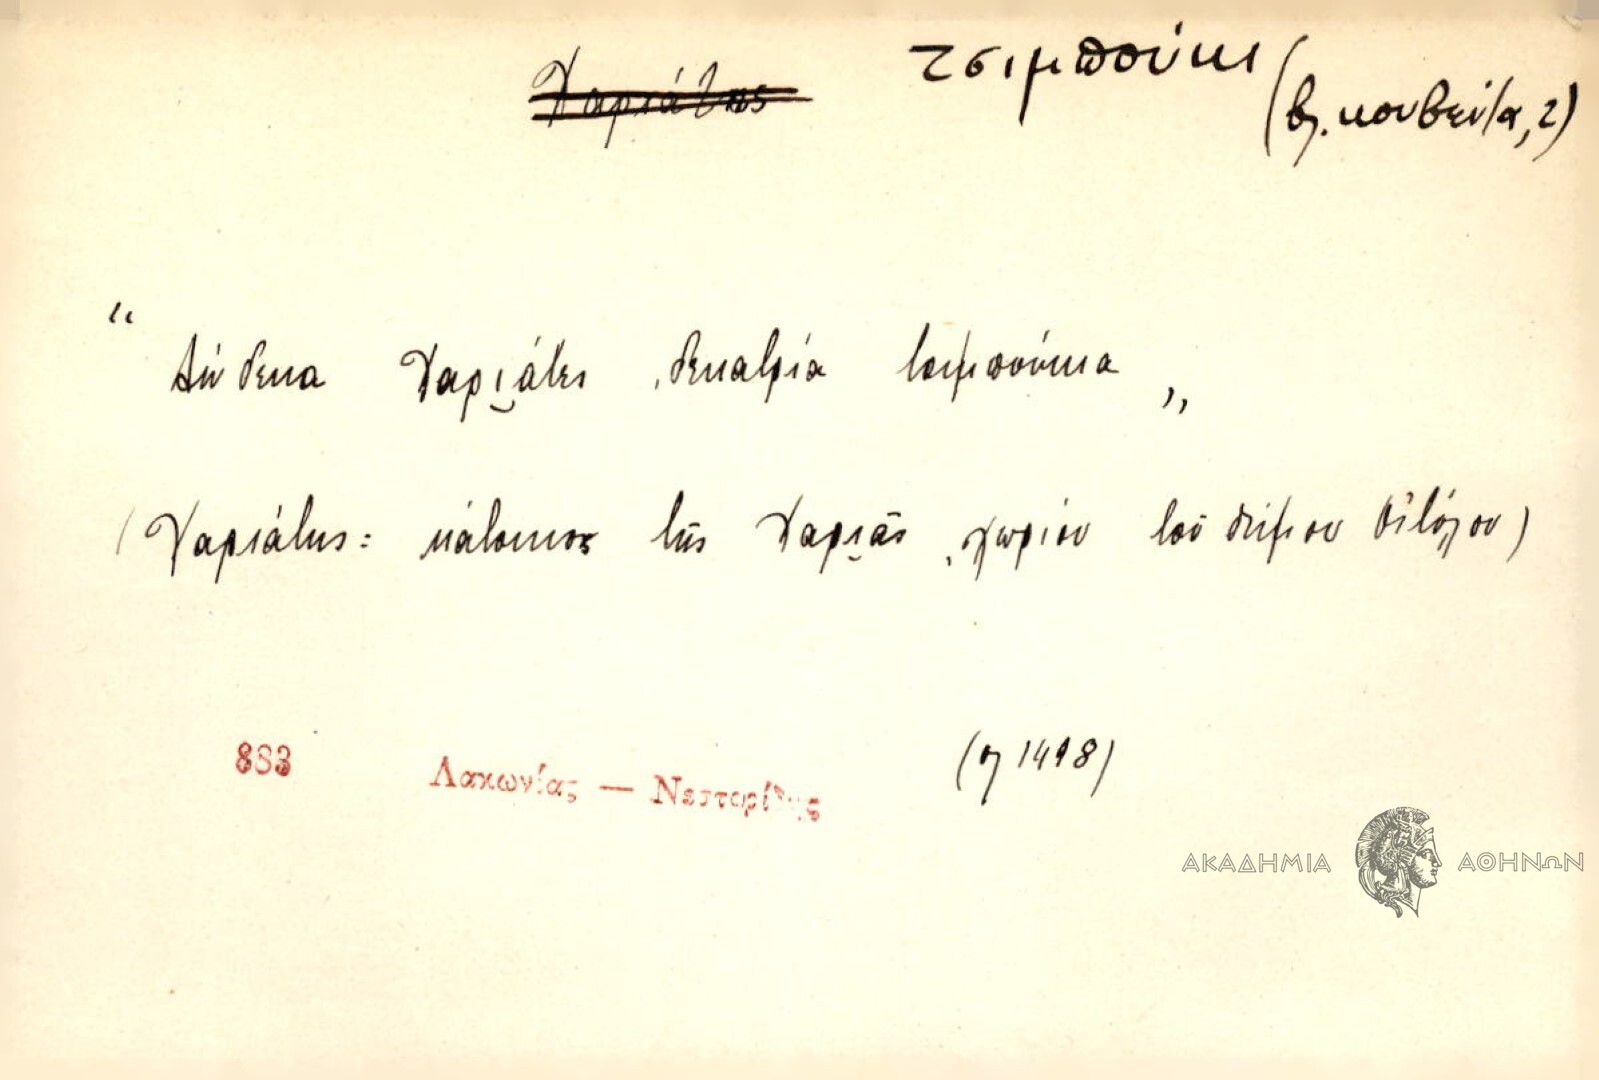 Χαριάτης τσιμπούκι
(βλ. κουβέντα, 2)
“Δώδεκα Χαρι̮άτες, δεκατρία τσιμπούκια„
(Χαριάτης: κάτοικος τῆς Χαρι̮ᾶς, χωρίου τοῦ δήμου Οἰτύλου)
883 Λακωνίας — Νεστορίδης 1498)
ΑΚΑΔΗΜΙΑ ΑΘΗΝΩΝ